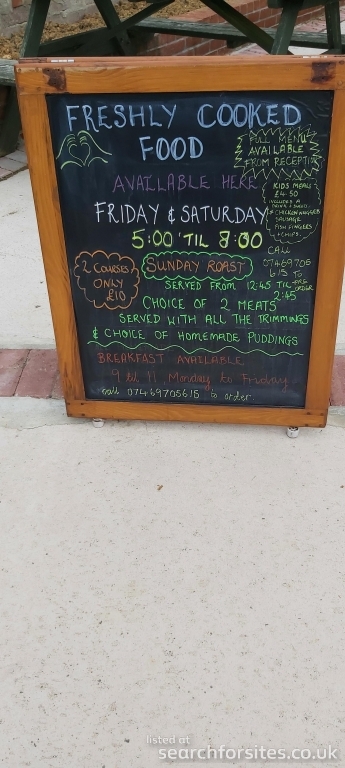 FRESHLY COOKED
FOOD
FULL MENU
AVAILABLE
FROM RECEPTION
AVAILABLE HERE
KIDS MEALS
£4.50
INCLUDES A
DRINK & SWEET
CHICKEN NUGGETS
SAUSAGE
FISH FINGERS
& CHIPS
FRIDAY & SATURDAY
5:00 'TIL 8:00
CALL
07469705
615 TO
PRE
ORDER
2 COURSES
ONLY
£10
SUNDAY ROAST
SERVED FROM 12:45 TIL
2:45
CHOICE OF 2 MEATS
SERVED WITH ALL THE TRIMMINGS
& CHOICE OF HOMEMADE PUDDINGS
BREAKFAST AVAILABLE
9 til 11 Monday to Friday
call 07469705615 to order.
listed at
searchforsites.co.uk